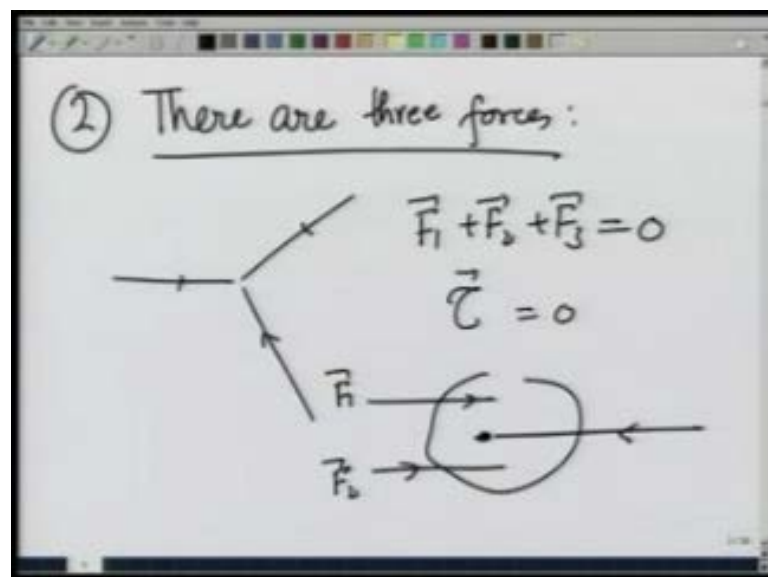 ② There are three forces:
F⃗₁ + F⃗₂ + F⃗₃ = 0
τ⃗ = 0
F⃗₁
F⃗₂